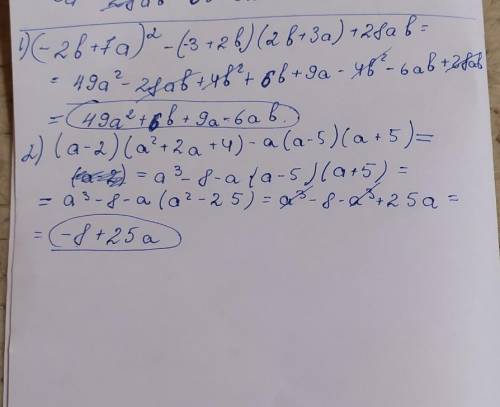 1) (-2b+7a)² - (-3+2b)(2b+3a)+28ab=
= 49a² - 28ab + 4b² + 6b + 9a - 4b² - 6ab + 28ab
= 49a² + 6b + 9a - 6ab.
2) (a-2)(a²+2a+4) - a(a-5)(a+5)=
= a³ - 8 - a(a-5)(a+5) =
= a³ - 8 - a(a² - 25) = a³ - 8 - a³ + 25a =
= -8+25a